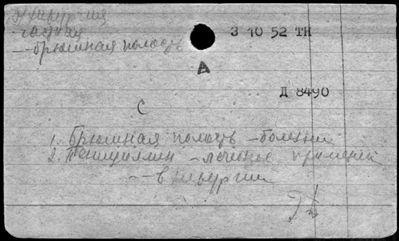 Хирургия
частная
—брюшная полость
3 10 52 ТН
А
Д 8490
С
1. Брюшная полость —болезни
2. Пенициллин —лечебное применен
— —в хирургии